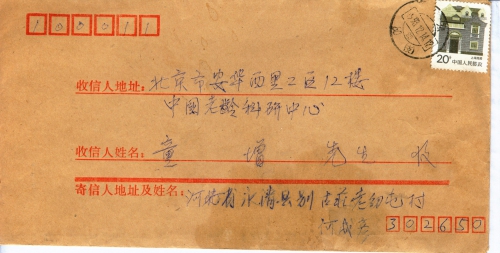 100011
20分
中国人民邮政
收信人地址: 北京市安华西里2区12楼
中国老龄科研中心
收信人姓名: 童 增 先生 收
寄信人地址及姓名: 河北省永清县别古庄老幼屯村
302650